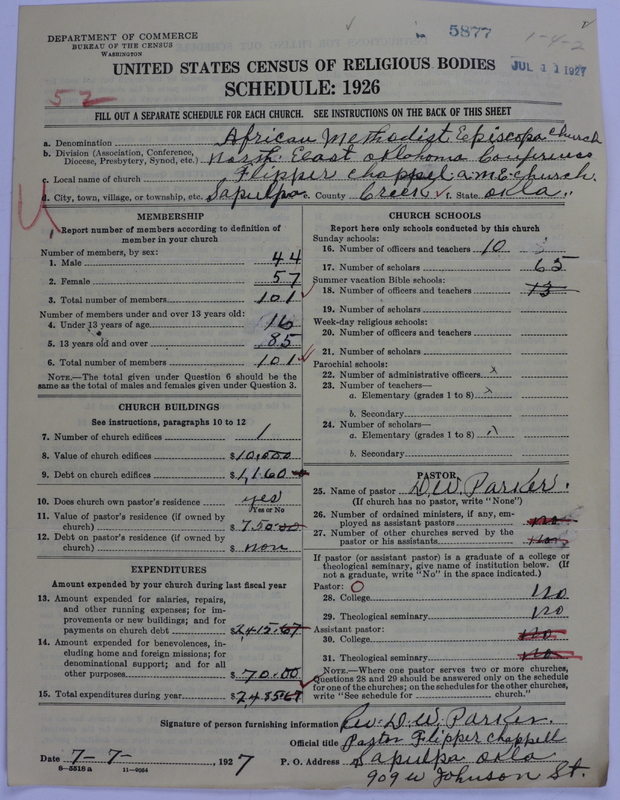 DEPARTMENT OF COMMERCE
BUREAU OF THE CENSUS
WASHINGTON
5877
1-4-2
JUL 11 1927
UNITED STATES CENSUS OF RELIGIOUS BODIES
SCHEDULE: 1926
52
FILL OUT A SEPARATE SCHEDULE FOR EACH CHURCH. SEE INSTRUCTIONS ON THE BACK OF THIS SHEET
a. Denomination African Methodist Episcopa church
b. Division (Association, Conference, Diocese, Presbytery, Synod, etc.) North East oklohoma Conference
c. Local name of church Flipper chappel a.m.E. church.
d. City, town, village, or township, etc. Sapulpa e. County Creek f. State okla.
MEMBERSHIP
Report number of members according to definition of
member in your church
Number of members, by sex:
1. Male 44
2. Female 57
3. Total number of members 101
Number of members under and over 13 years old:
4. Under 13 years of age 16
5. 13 years old and over 85
6. Total number of members 101
NOTE.—The total given under Question 6 should be the
same as the total of males and females given under Question 3.
CHURCH BUILDINGS
See instructions, paragraphs 10 to 12
7. Number of church edifices 1
8. Value of church edifices $10,000
9. Debt on church edifices $1,160
10. Does church own pastor's residence yes
Yes or No
11. Value of pastor's residence (if owned by
church) $750.00
12. Debt on pastor's residence (if owned by
church) $ non
EXPENDITURES
Amount expended by your church during last fiscal year
13. Amount expended for salaries, repairs,
and other running expenses; for im-
provements or new buildings; and for
payments on church debt $2415.67
14. Amount expended for benevolences, in-
cluding home and foreign missions; for
denominational support; and for all
other purposes $70.00
15. Total expenditures during year $2485.67
CHURCH SCHOOLS
Report here only schools conducted by this church
Sunday schools:
16. Number of officers and teachers 10
17. Number of scholars 65
Summer vacation Bible schools:
18. Number of officers and teachers 13
19. Number of scholars
Week-day religious schools:
20. Number of officers and teachers
21. Number of scholars
Parochial schools:
22. Number of administrative officers x
23. Number of teachers—
a. Elementary (grades 1 to 8)
b. Secondary
24. Number of scholars—
a. Elementary (grades 1 to 8)
b. Secondary
PASTOR
25. Name of pastor D.W. Parker.
(If church has no pastor, write "None")
26. Number of ordained ministers, if any, em-
ployed as assistant pastors no
27. Number of other churches served by the
pastor or his assistants
If pastor (or assistant pastor) is a graduate of a college or
theological seminary, give name of institution below. (If
not a graduate, write "No" in the space indicated.)
Pastor:
28. College no
29. Theological seminary no
Assistant pastor:
30. College no
31. Theological seminary no
NOTE.—Where one pastor serves two or more churches,
Questions 28 and 29 should be answered only on the schedule
for one of the churches; on the schedules for the other churches,
write "See schedule for church."
Signature of person furnishing information Rev. D.W. Parker.
Official title Pastor Flipper chappell
Date 7-7- 1927 P. O. Address Sapulpa okla
8-5518 a 11-9034
909 W Johnson St.